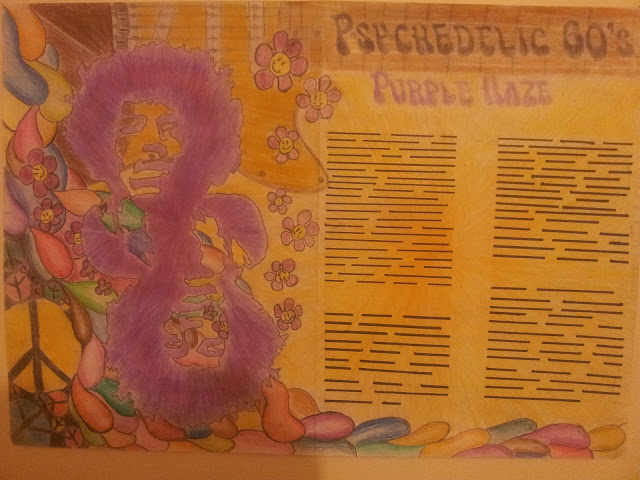 PSYCHEDELIC 60'S
PURPLE HAZE